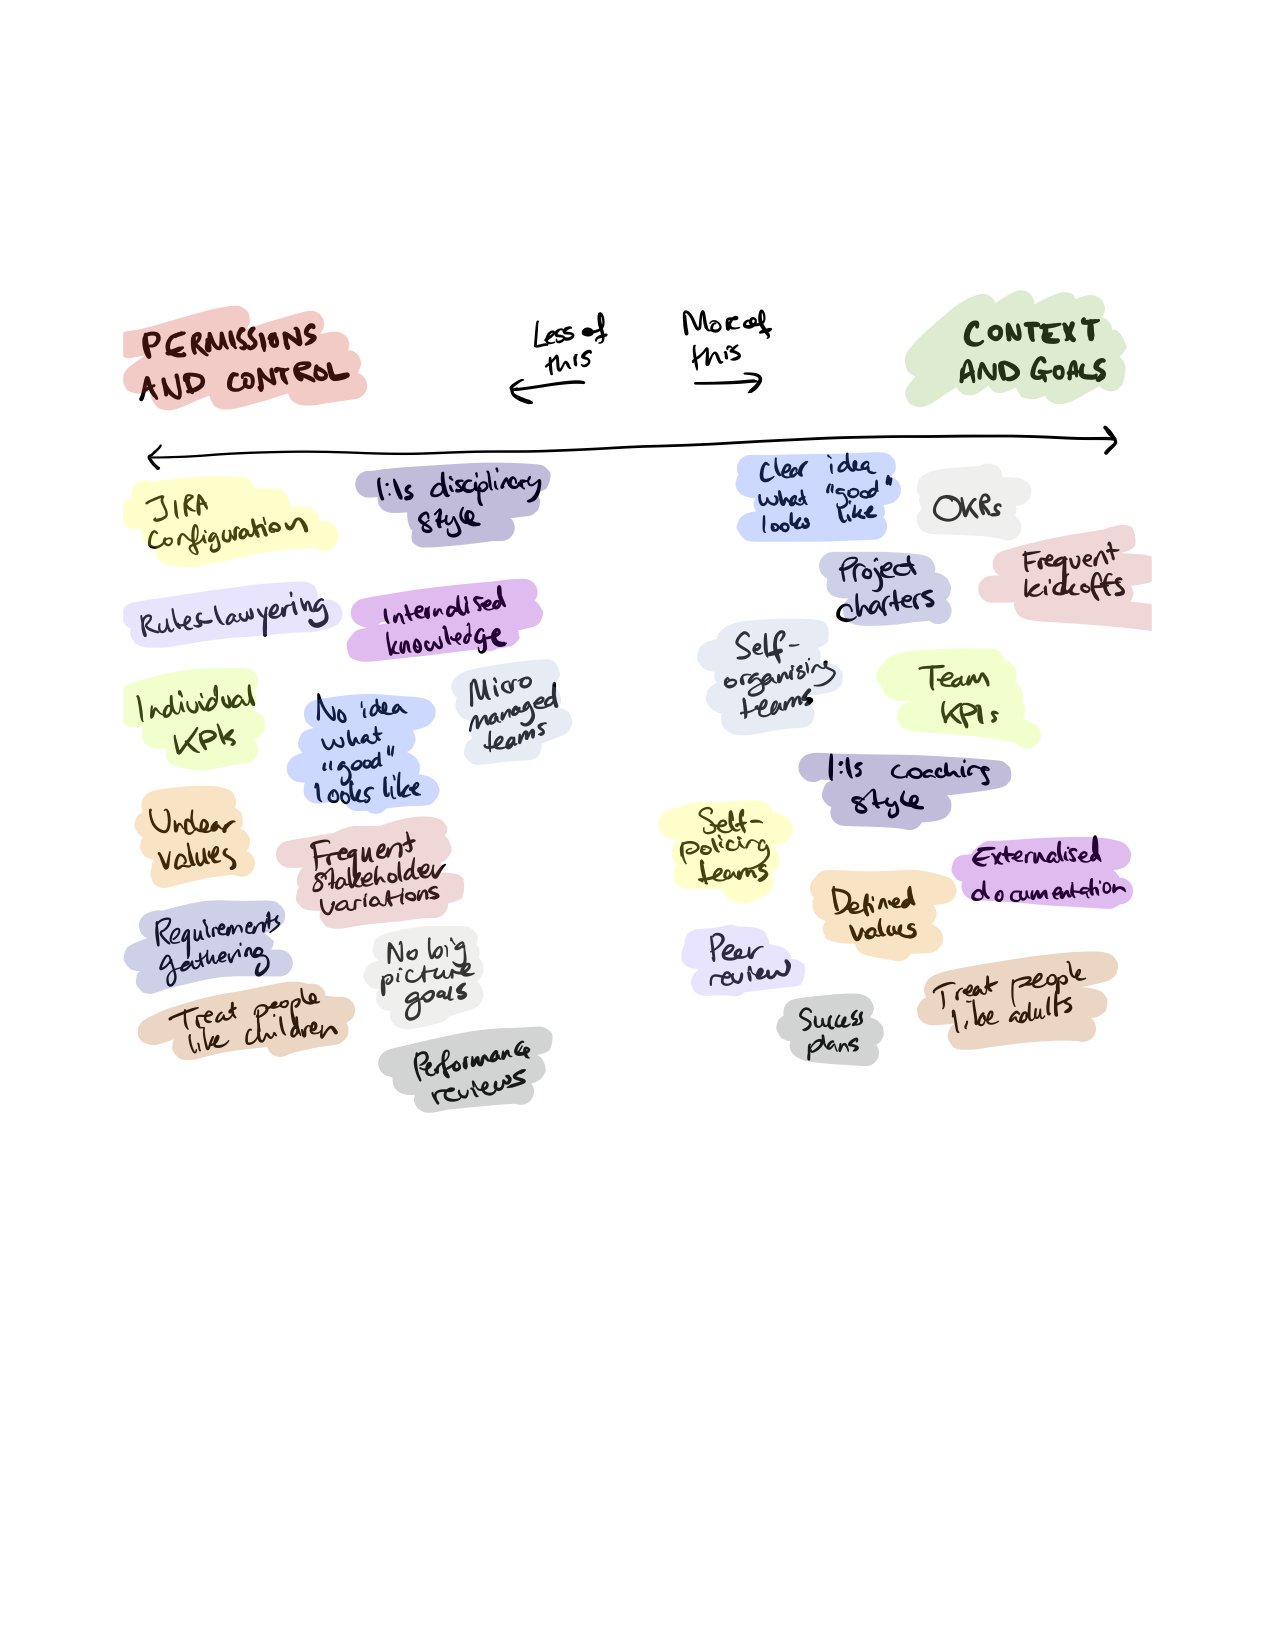 PERMISSIONS
AND CONTROL
Less of
this
More of
this
CONTEXT
AND GOALS
JIRA
configuration
1:1s disciplinary
style
Rules-lawyering
Internalised
knowledge
Individual
KPIs
No idea
what
"good"
looks like
Micro
managed
teams
Unclear
values
Frequent
stakeholder
variations
Requirements
gathering
No big
picture
goals
Treat people
like children
Performance
reviews
Clear idea
what "good"
looks like
OKRs
Project
charters
Frequent
kickoffs
Self-
organising
teams
Team
KPIs
1:1s coaching
style
Self-
policing
teams
Externalised
documentation
Defined
values
Peer
review
Treat people
like adults
Success
plans